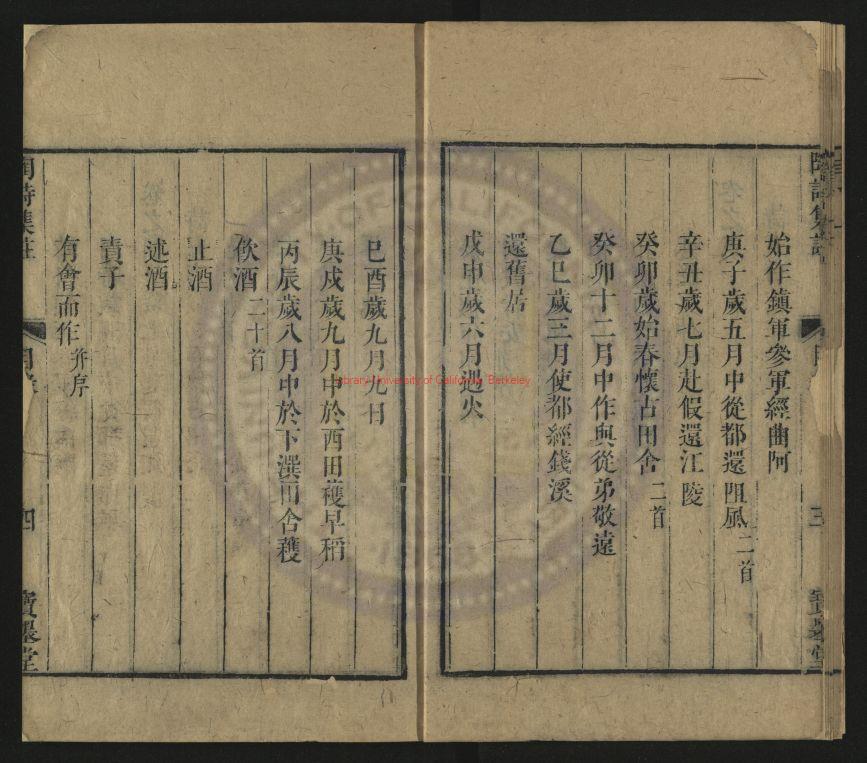 始作鎮軍參軍經曲阿
庚子歲五月中從都還阻風二首
辛丑歲七月赴假還江陵
癸卯歲始春懷古田舍二首
癸卯十二月中作與從弟敬遠
乙巳歲三月使都經錢溪
還舊居
戊申歲六月遇火
己酉歲九月九日
庚戌歲九月中於西田穫早稻
丙辰歲八月中於下潠田舍穫
飲酒二十首
止酒
述酒
責子
有會而作并序
陶詩集註
四
寶墨堂
Library University of California, Berkeley